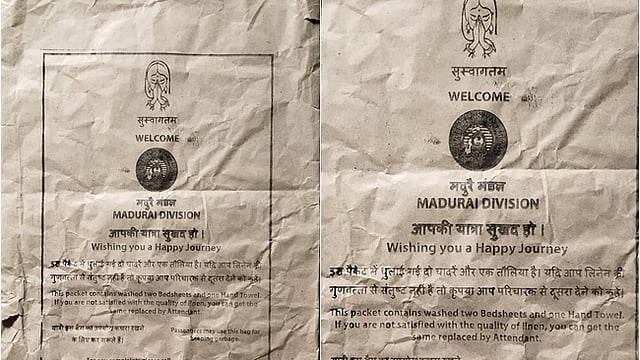 सुस्वागतम
WELCOME
मदुरै मंडल
MADURAI DIVISION
आपकी यात्रा सुखद हो।
Wishing you a Happy Journey
इस पैकेट में धुलाई गई दो चादरें और एक तौलिया है। यदि आप लिनेन की
गुणवत्ता से संतुष्ट नहीं हैं तो कृपया आप परिचारक से दूसरा देने को कहें।
This packet contains washed two Bedsheets and one Hand Towel.
If you are not satisfied with the quality of linen, you can get the
same replaced by Attendant.
यात्री इस बैग का उपयोग कचरा रखने
के लिए कर सकते हैं।
Passengers may use this bag for
keeping garbage.
सुस्वागतम
WELCOME
मदुरै मंडल
MADURAI DIVISION
आपकी यात्रा सुखद हो।
Wishing you a Happy Journey
इस पैकेट में धुलाई गई दो चादरें और एक तौलिया है। यदि आप लिनेन की
गुणवत्ता से संतुष्ट नहीं हैं तो कृपया आप परिचारक से दूसरे देने को कहें।
This packet contains washed two Bedsheets and one Hand Towel.
If you are not satisfied with the quality of linen, you can get the
same replaced by Attendant.